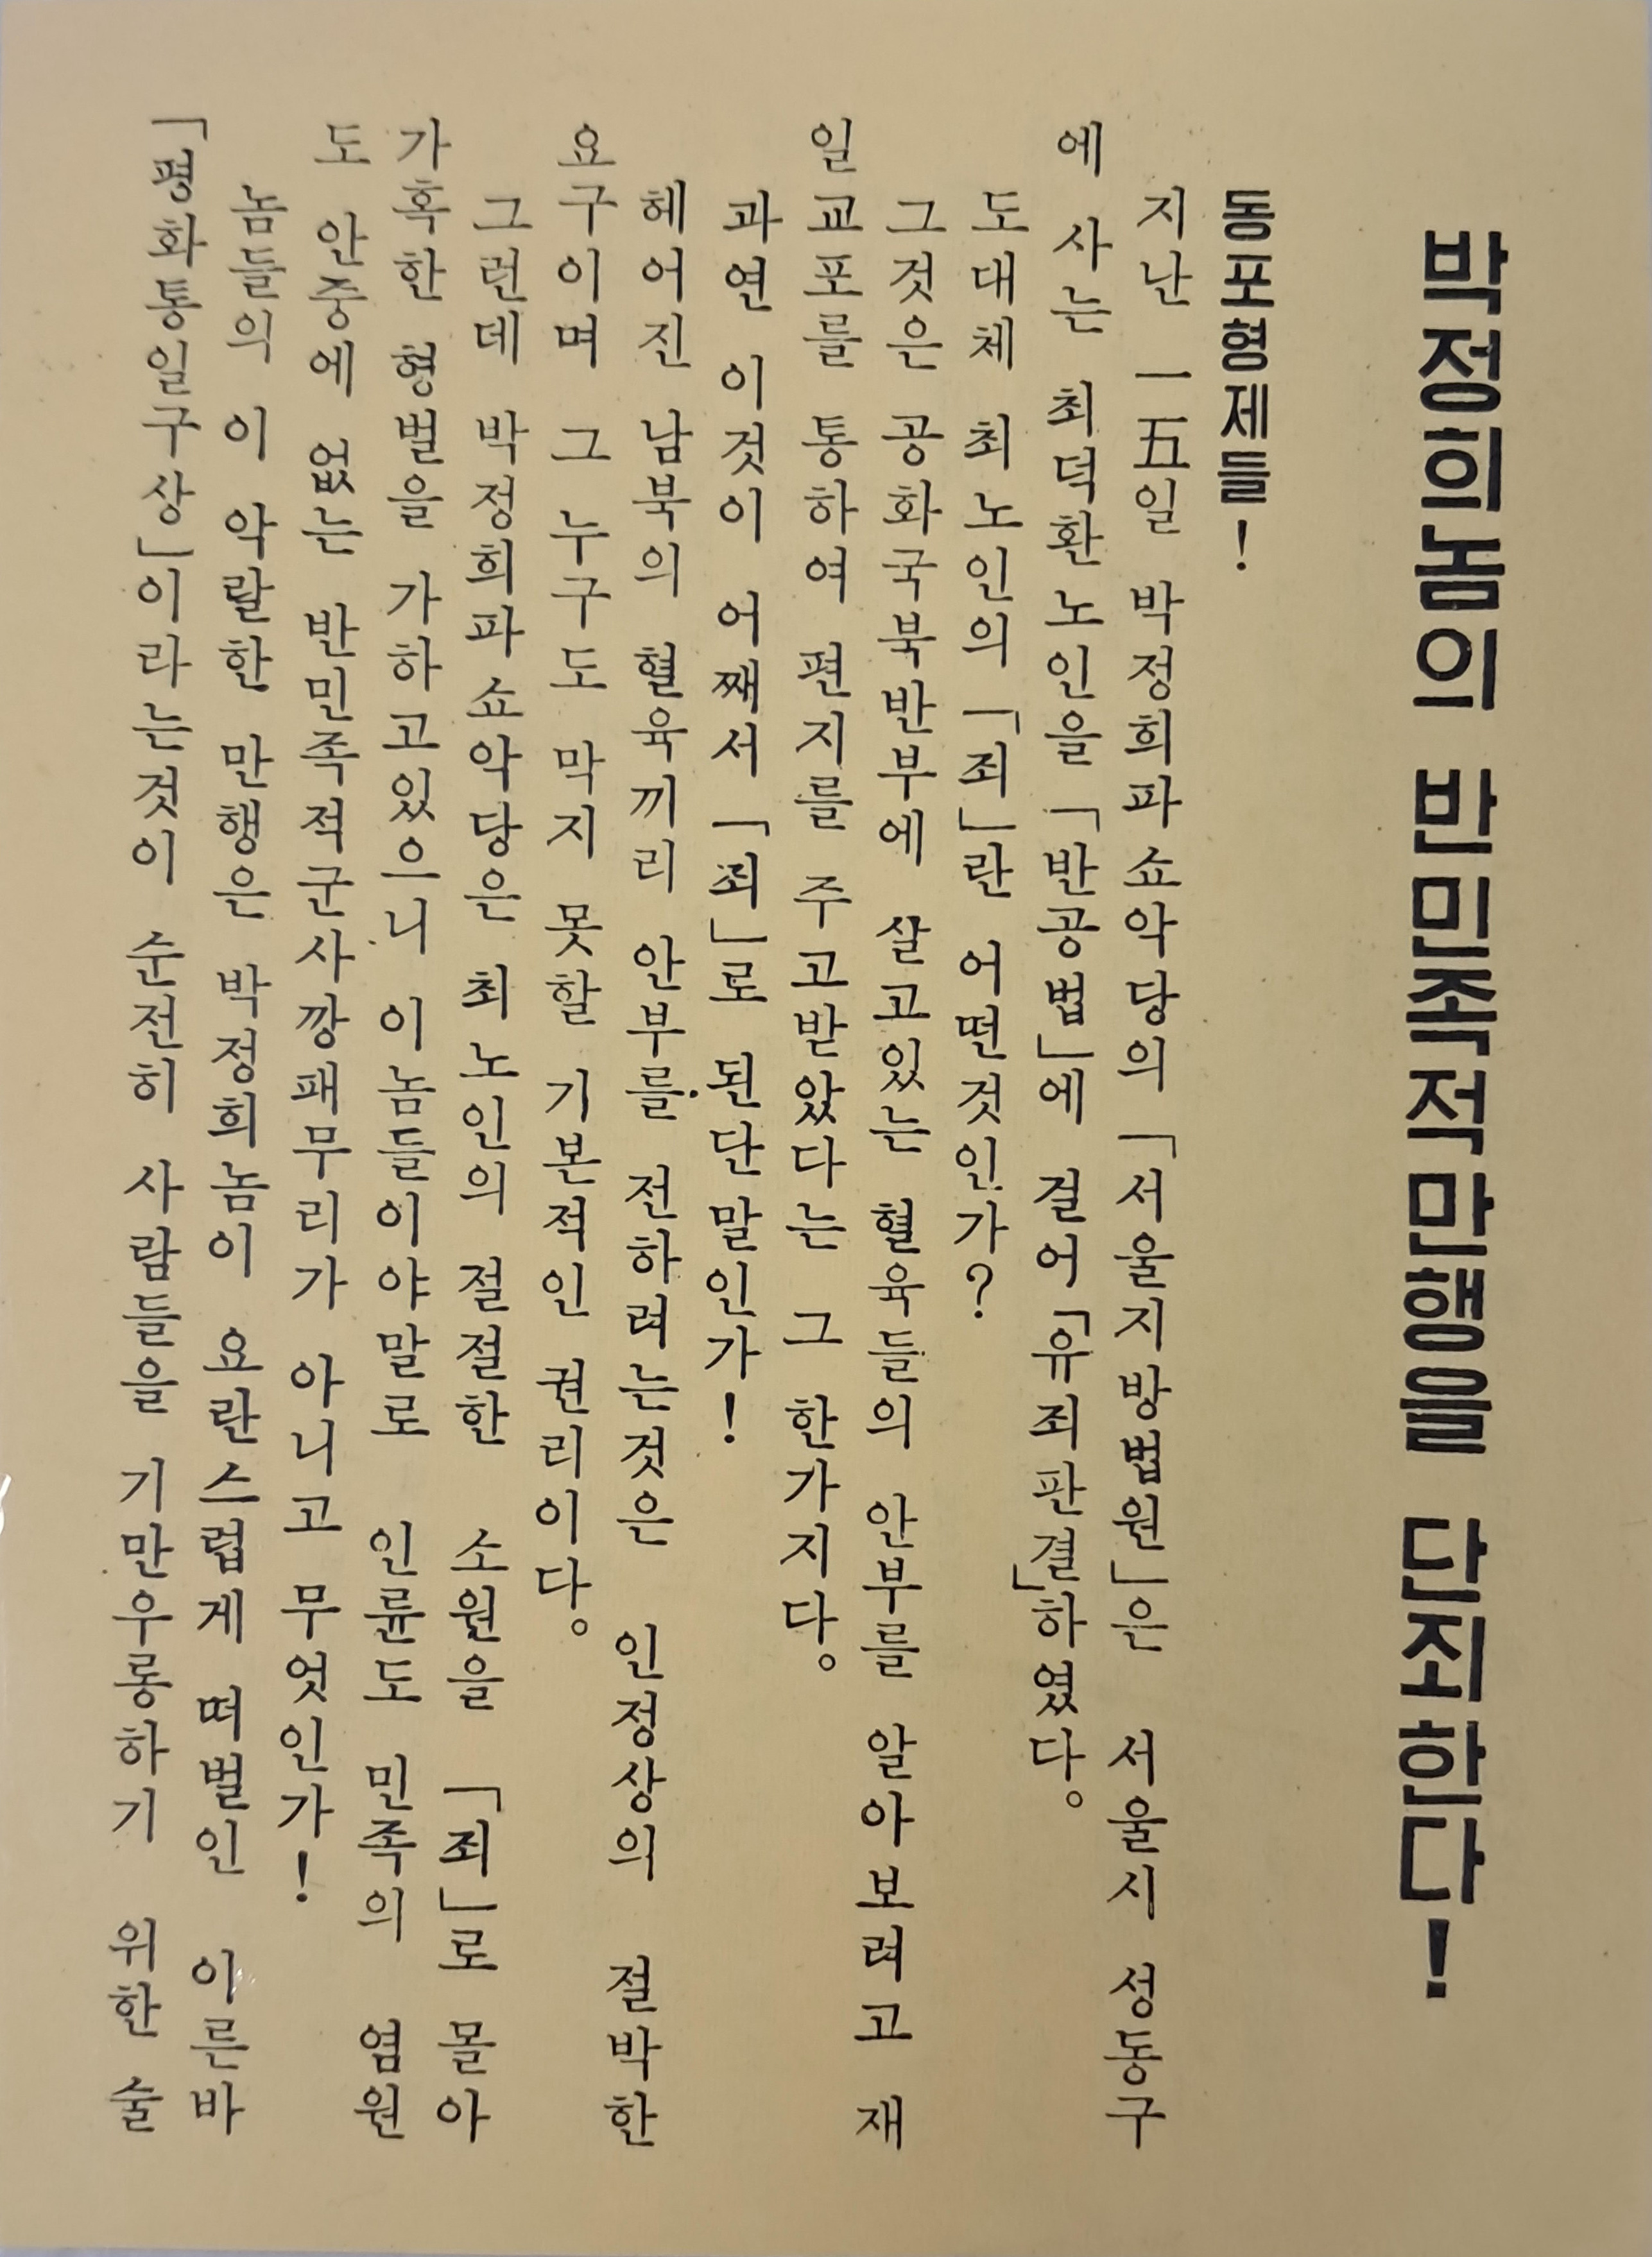 박정희놈의 반민족적만행을 단죄한다!
동포형제들!
지난 一五일 박정희파쇼악당의 「서울지방법원」은 서울시 성동구
에 사는 최덕환노인을 「반공법」에 걸어 「유죄판결」하였다。
도대체 최노인의 「죄」란 어떤것인가?
그것은 공화국북반부에 살고있는 혈육들의 안부를 알아보려고 재
일교포를 통하여 편지를 주고받았다는 그 한가지다。
과연 이것이 어째서 「죄」로 된단말인가!
헤어진 남북의 혈육끼리 안부를 전하려는것은 인정상의 절박한
요구이며 그 누구도 막지 못할 기본적인 권리이다。
그런데 박정희파쇼악당은 최노인의 절절한 소원을 「죄」로 몰아
가혹한 형벌을 가하고있으니 이놈들이야말로 인륜도 민족의 염원
도 안중에 없는 반민족적군사깡패무리가 아니고 무엇인가!
놈들의 이 악랄한 만행은 박정희놈이 요란스럽게 떠벌인 이른바
「평화통일구상」이라는것이 순전히 사람들을 기만우롱하기 위한 술